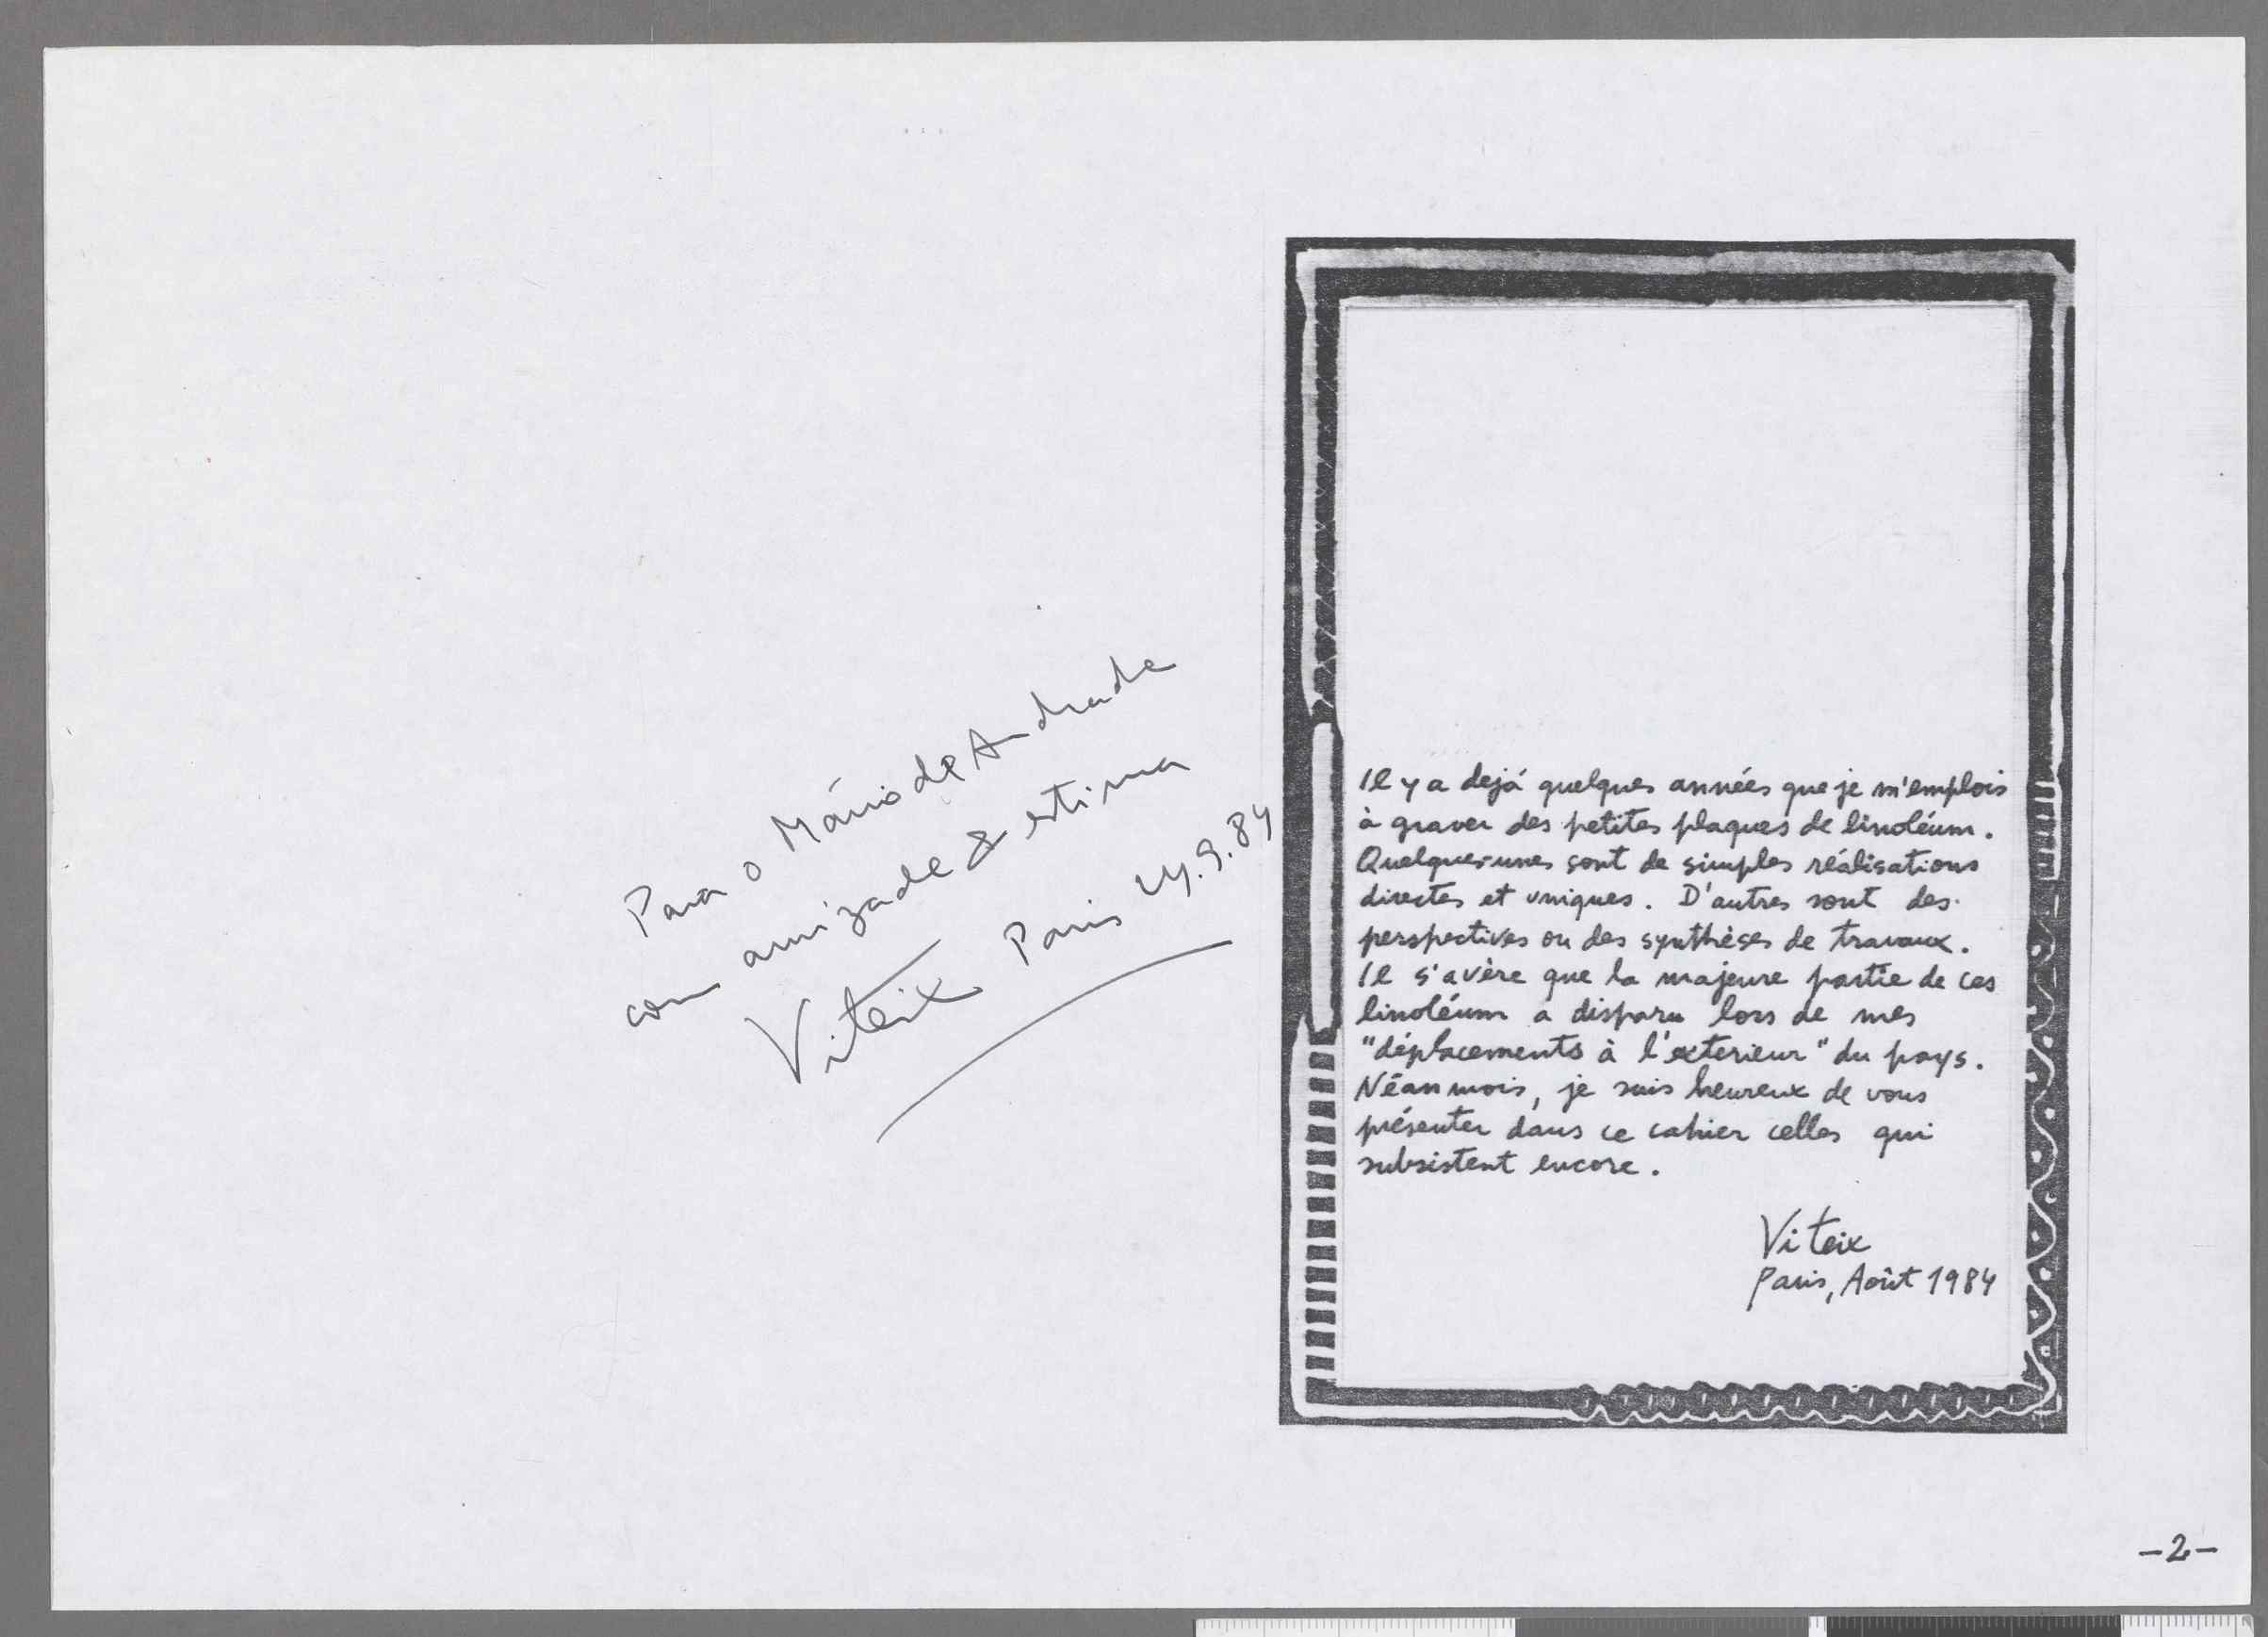 Para o Mário de Andrade
com amizade & estima
Viteix Paris 24.9.84
Il y a dejá quelques années que je m'emplois
à graver des petites plaques de linoléum.
Quelques-unes sont de simples réálisations
directes et uniques. D'autres sont des
perspectives ou des synthèses de travaux.
Il s'avère que la majeure partie de ces
linoléum a disparu lors de mes
"déplacements à l'exterieur" du pays.
Néanmois, je suis heureux de vous
présenter dans ce cahier celles qui
subsistent encore.
Viteix
Paris, Août 1984
-2-